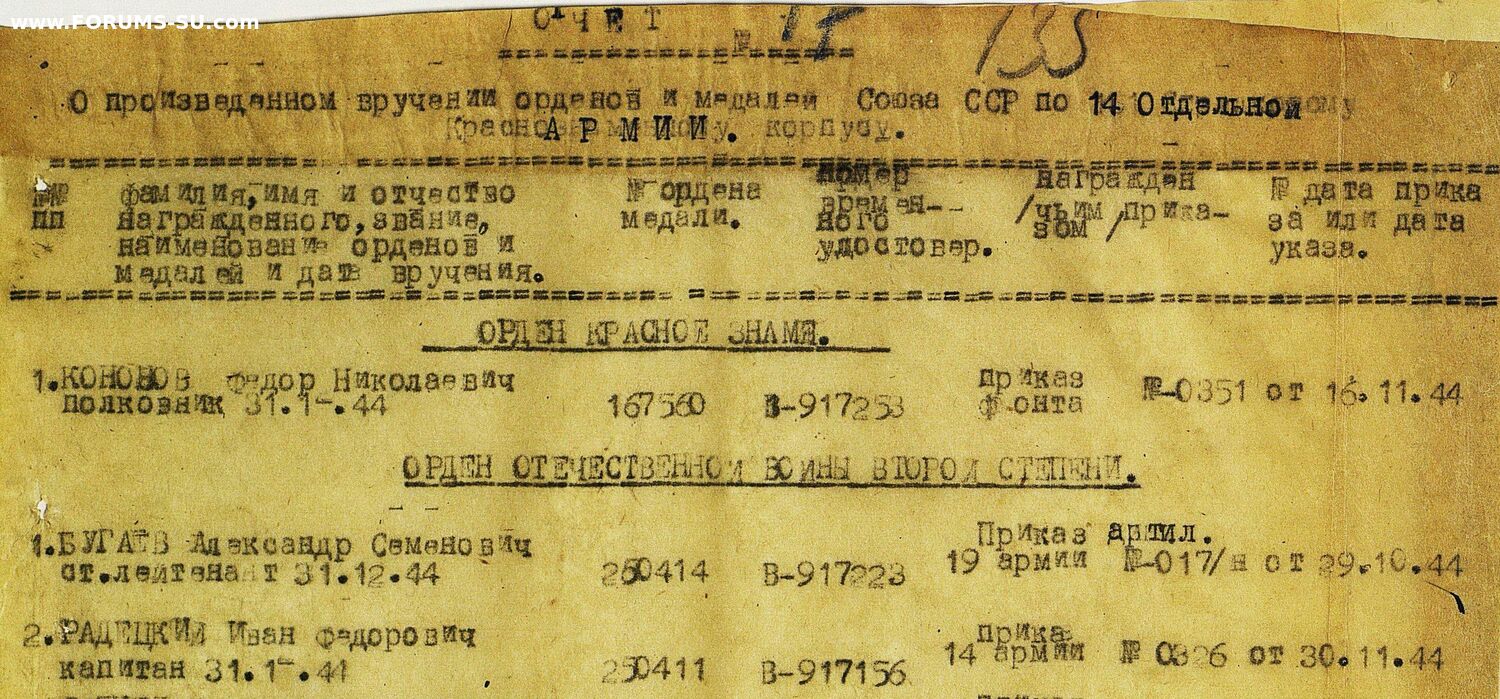 www.FORUMS-SU.com
ОТЧЕТ № 14 135
О произведенном вручении орденов и медалей Союза ССР по 14 Отдельной
АРМИИ. корпусу.
№№ фамилия, имя и отчество № ордена номер награжден № дата прика
пп награжденного, звание, медали. времен- /чьим прика- за или дата
наименование орденов и ного зом/ указа.
медалей и дата вручения. удостовер.
ОРДЕН КРАСНОЕ ЗНАМЯ.
1.КОНОНОВ Федор Николаевич приказ
полковник 31.1-.44 167560 В-917253 фронта №-0351 от 16.11.44
ОРДЕН ОТЕЧЕСТВЕННОЙ ВОЙНЫ ВТОРОЙ СТЕПЕНИ.
1.БУГАЕВ Александр Семенович Приказ артил.
ст.лейтенант 31.12.44 250414 В-917223 19 армии №-017/н от 29.10.44
2.РАДЕЦКИЙ Иван Федорович прика
капитан 31.1-.44 250411 В-917156 14 армии № 0326 от 30.11.44